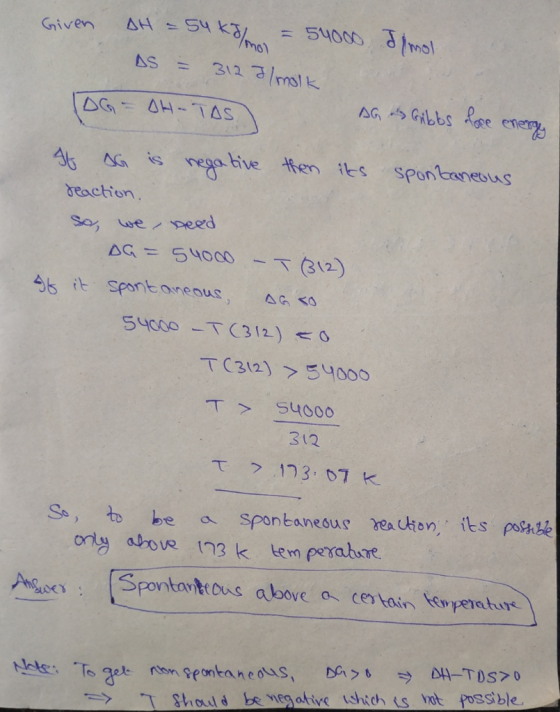 Given ΔH = 54 kJ/mol = 54000 J/mol
ΔS = 312 J/molk
ΔG = ΔH - TΔS
ΔG → Gibbs free energy
If ΔG is negative then its spontaneous
reaction.
So, we need
ΔG = 54000 - T(312)
If it spontaneous, ΔG <0
54000 - T(312) < 0
T(312) > 54000
T > 54000
312
T > 173.07 K
So, to be a spontaneous reaction, its possible
only above 173 k temperature
Answer : Spontaneous above a certain temperature
Note: To get nonspontaneous, ΔG>0 ⇒ ΔH-TΔS>0
⇒ T should be negative which is not possible